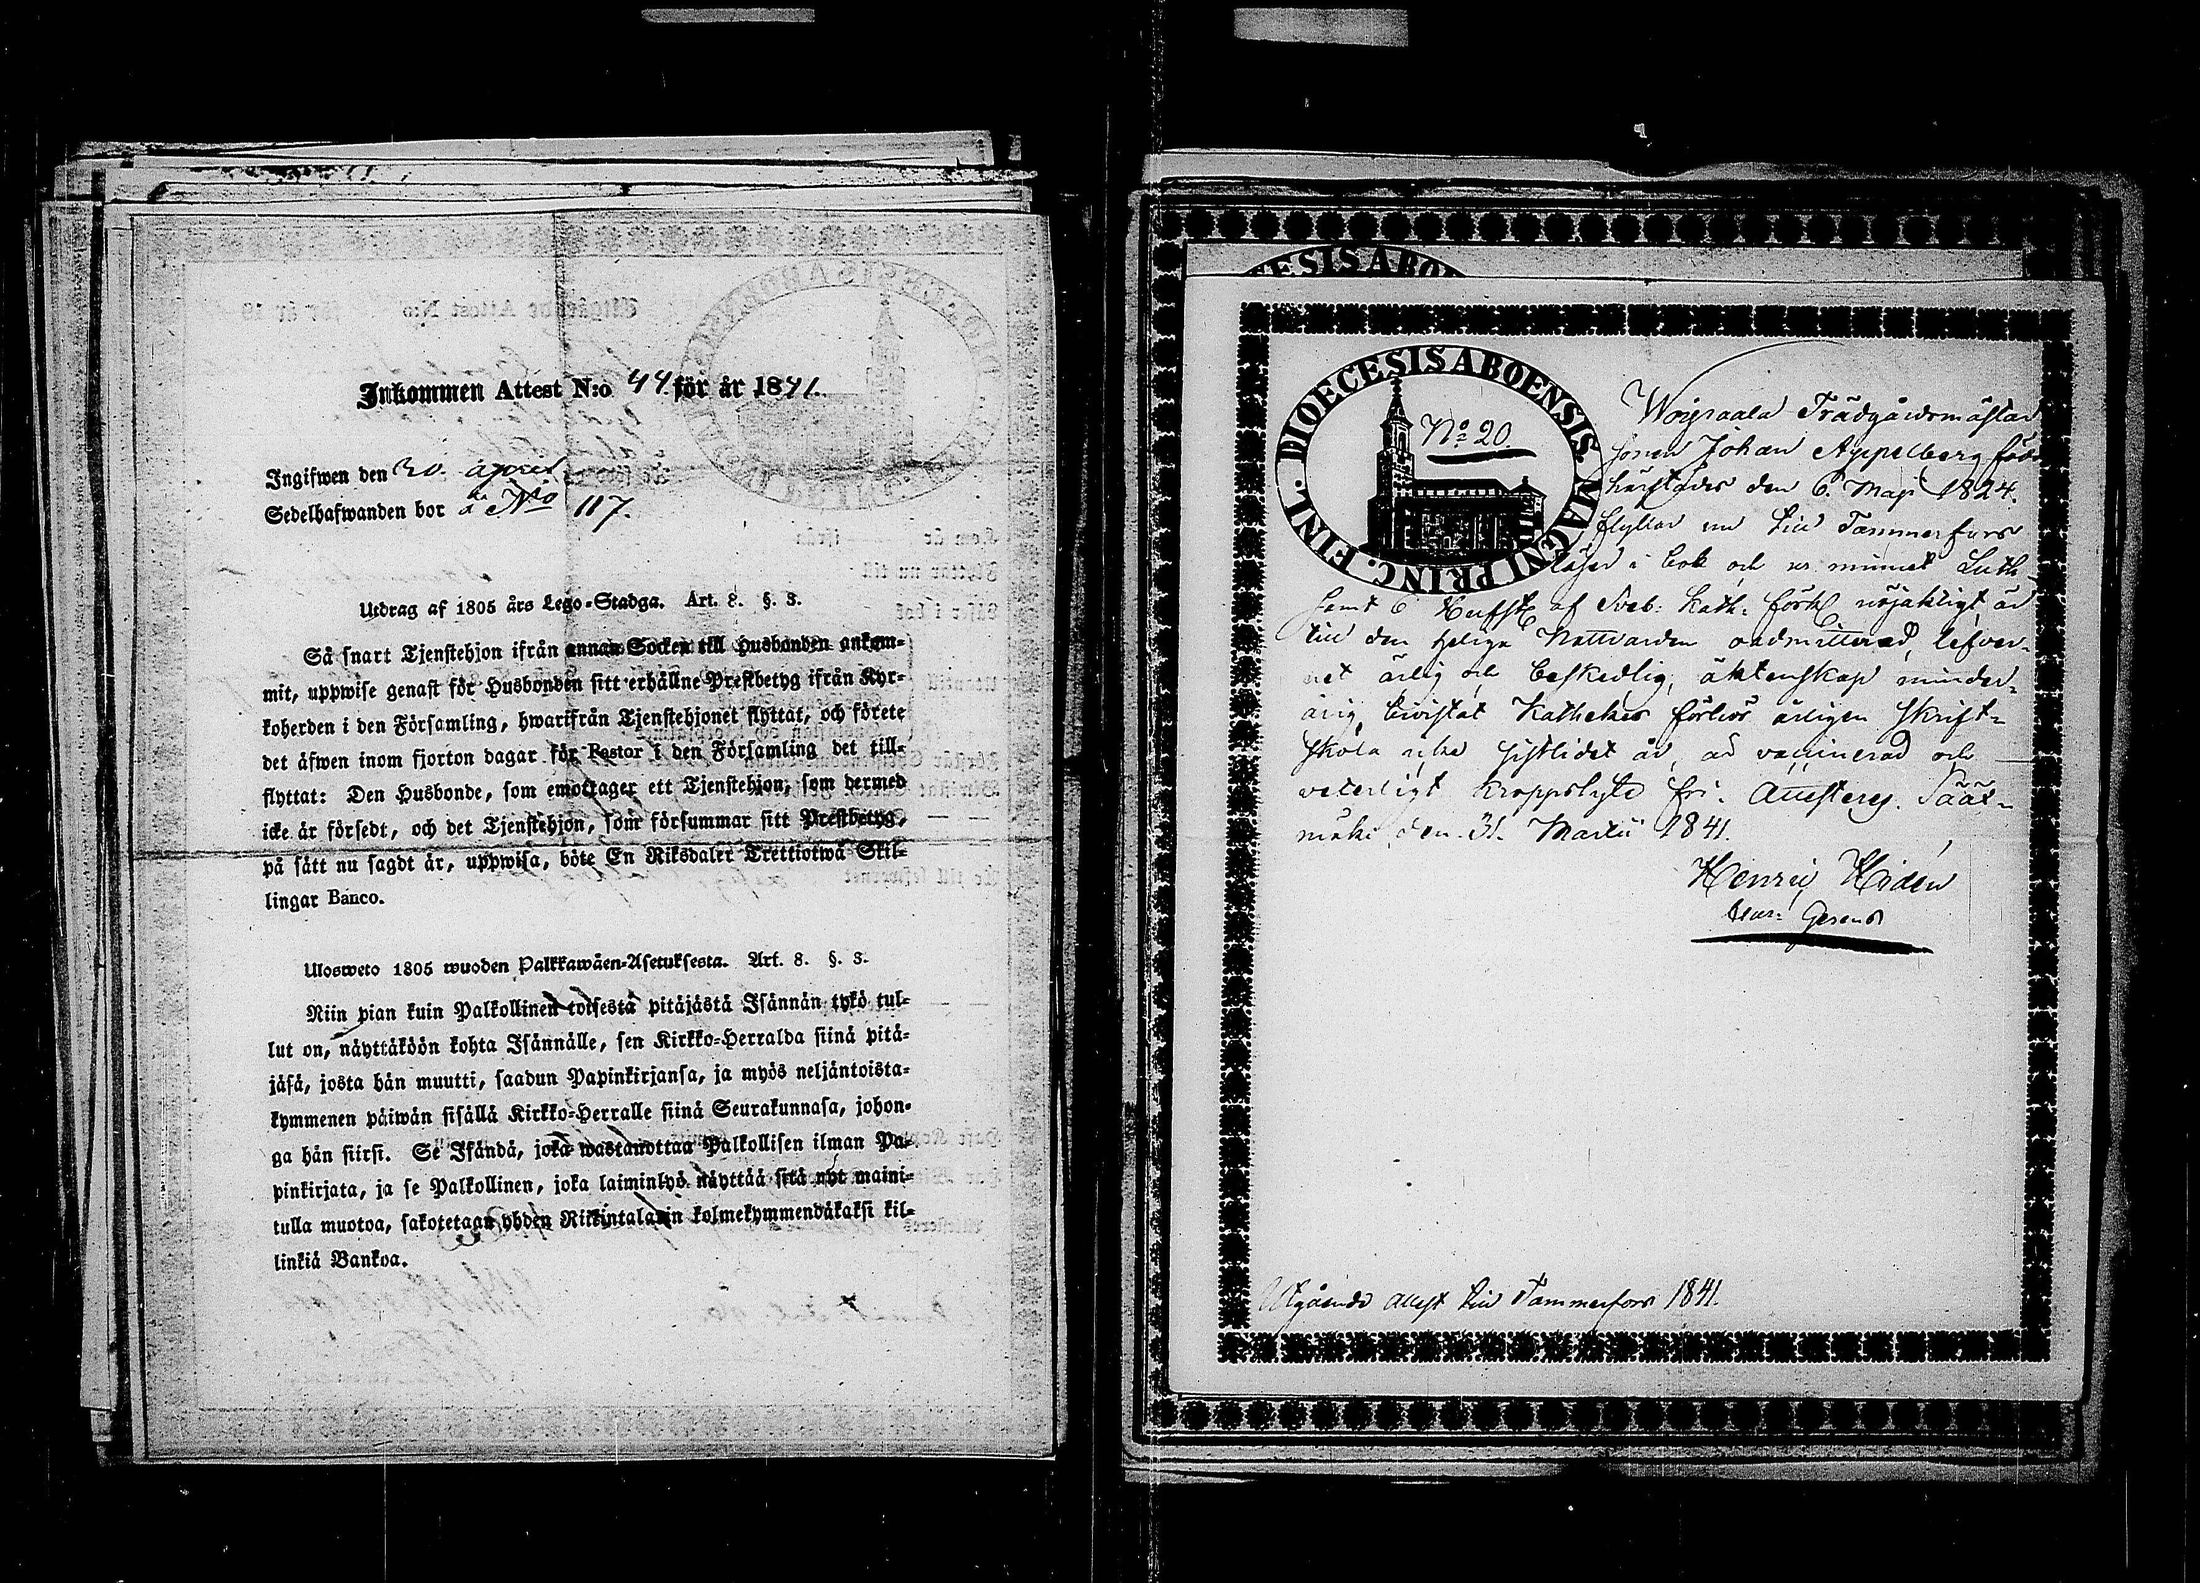 Inkommen Attest N:o 44. för år 1841.
Ingifwen den 20. april
Sedelhafwanden bor å No 117.
Utdrag af 1805 års Lego-Stadga. Art. 8. §. 3.
Så snart Tjenstehjon ifrån annan Socken till Husbonden ankom-
mit, uppwise genast för Husbonden sitt erhållne Prestbetyg ifrån Kyr-
koherden i den Församling, hwarifrån Tjenstehjonet flyttat, och förete
det äfwen inom fjorton dagar för Pastor i den Församling det till-
flyttat: Den Husbonde, som emottager ett Tjenstehjon, som dermed
icke är försedt, och det Tjenstehjon, som försummar sitt Prestbetyg,
på sätt nu sagdt är, uppwisa, böte En Riksdaler Trettiotwå Skil-
lingar Banco.
Ulosweto 1805 wuoden Palkkawäen-Asetuksesta. Art. 8. §. 3.
Niin pian kuin Palkollinen toisesta pitäjästä Isännän tykö tul-
lut on, näyttäköön kohta Isännälle, sen Kirkko-Herralda siinä pitä-
jäsä, josta hän muutti, saadun Papinkirjansa, ja myös neljäntoista-
kymmenen päiwän sisällä Kirkko-Herralle siinä Seurakunnasa, johon-
ga hän siirsi. Se Isändä, joka wastanottaa Palkollisen ilman Pa-
pinkirjata, ja se Palkollinen, joka laiminlyö näyttää sitä nyt maini-
tulla muotoa, sakotetaan yhden Rikkintalarin kolmekymmendäkaksi kil-
linkiä Bankoa.
DIOECESIS ABO
DIOECESIS ABOENSIS MAGNI PRINC. FINL.
No 20.
Woipaala Trädgårdsmästar
sonen Johan Appelberg född
härstädes den 6. Maji 1824.
flyttar nu till Tammerfors
läser i bok och ur minnet Luth.
samt 6 Hufst. af Sveb: Kath: förkl. nöjaktigt är
till den Heliga Nattvarden oadmitterad, lefver-
net ärlig och beskedlig, äktenskap minder-
årig, bivistat Kathekes förhör årligen skrift-
skola sistlidet år, är vaccinerad och
veterligt kroppslyte fri. Attesterej. Sääx-
mäki den 31. Martii 1841.
Henric Hidén
Gerens
Utgående attest till Tammerfors 1841.